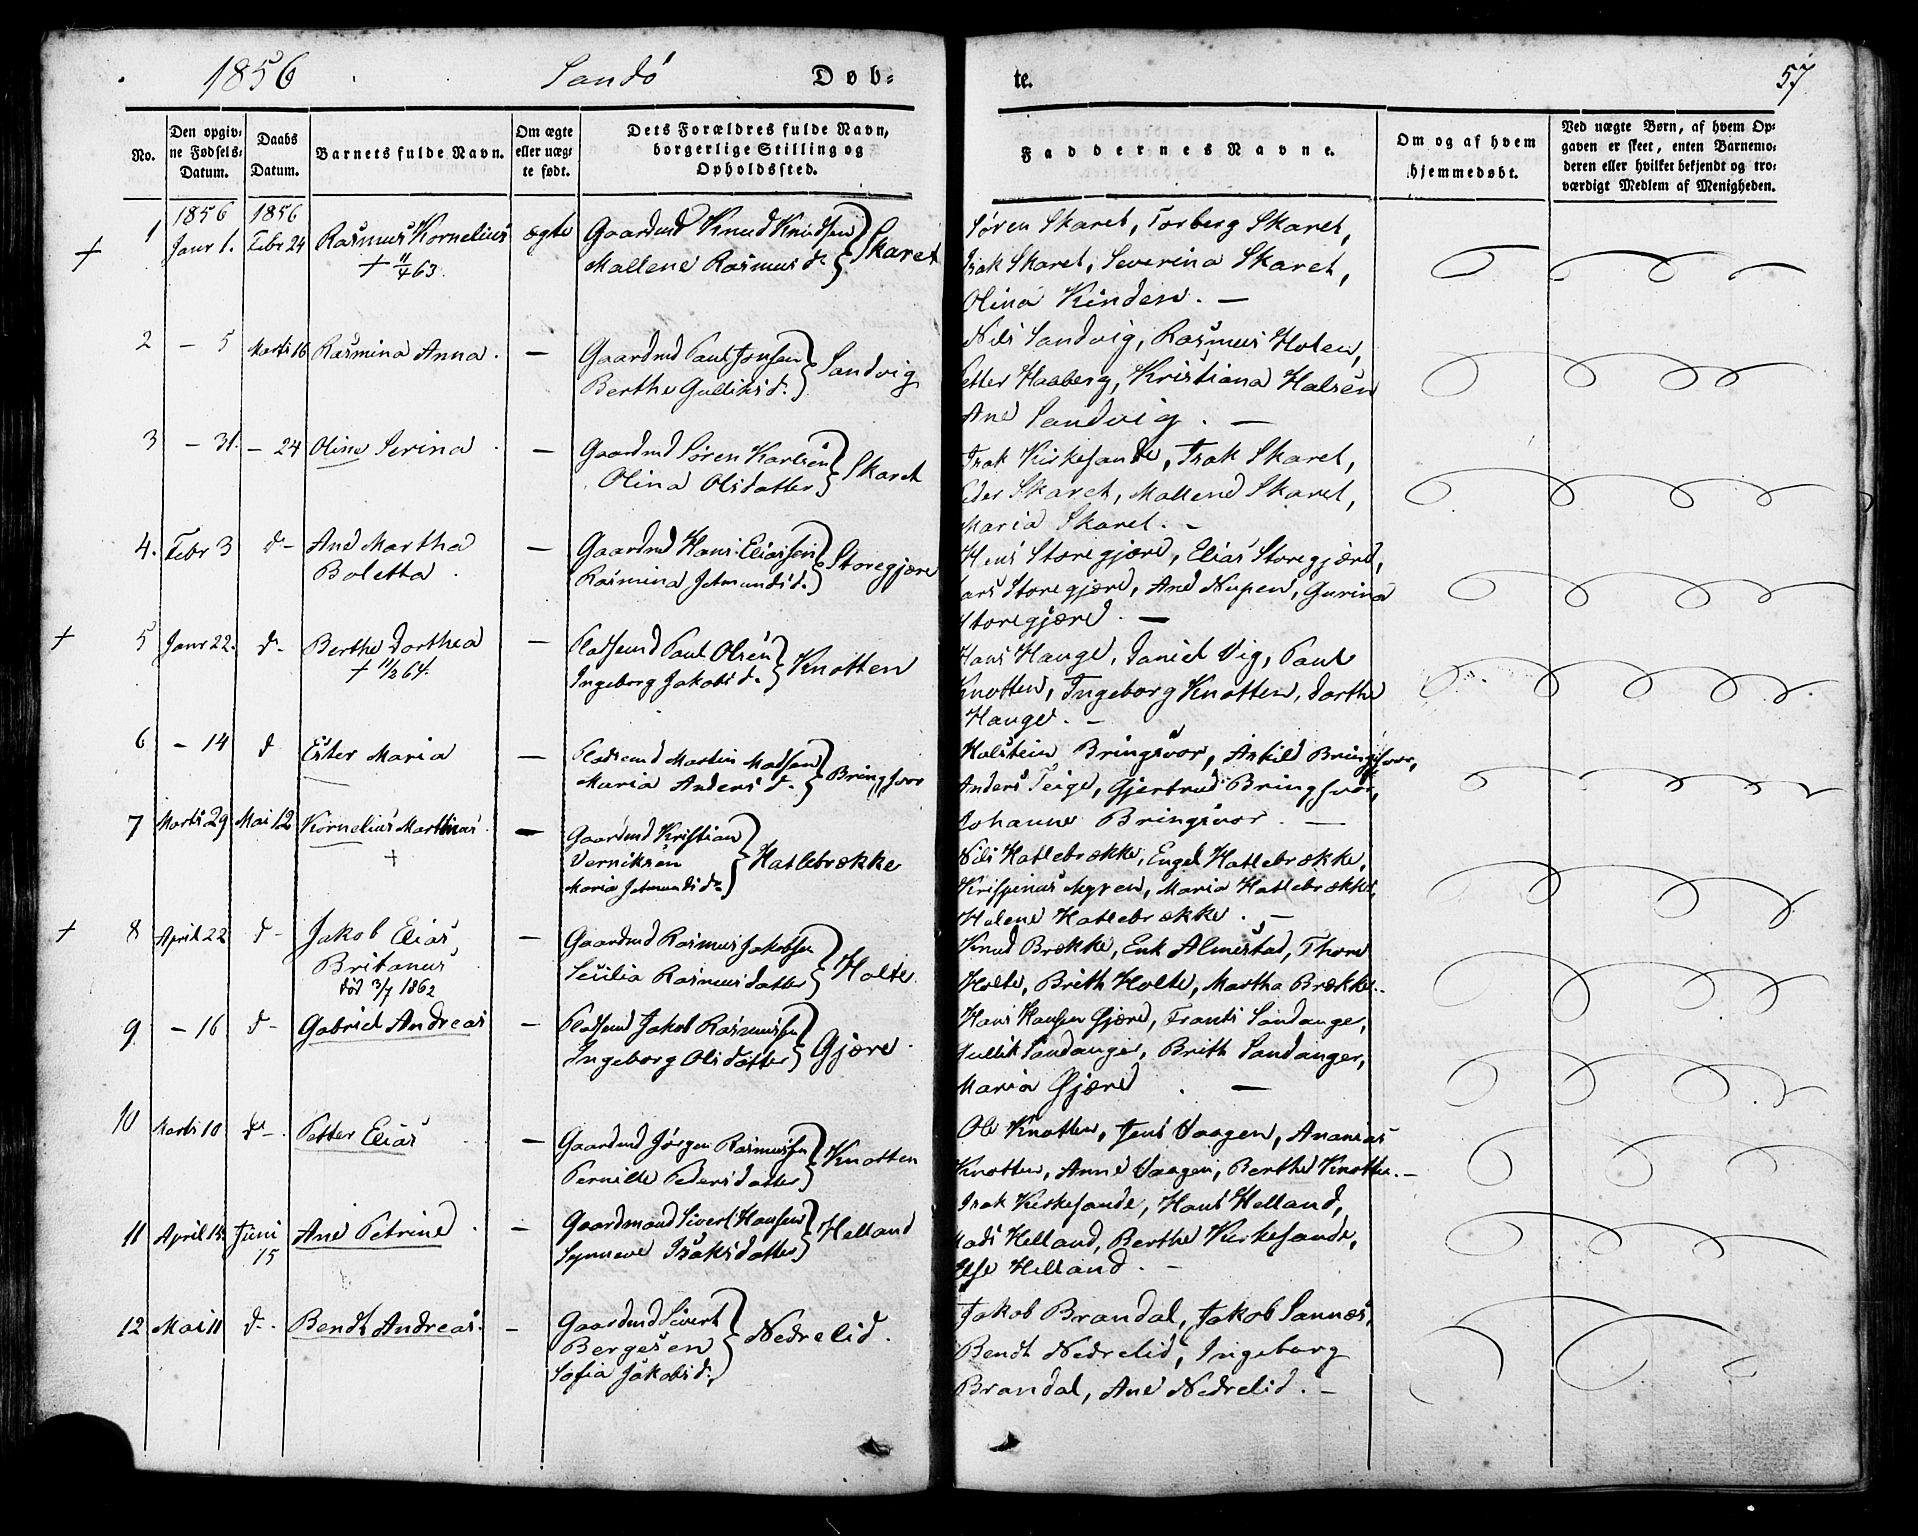 1856 Sandö Døb-
te. 57
No.
Den opgiv-
ne Fødsels-
Datum.
Daabs
Datum.
Barnets fulde Navn.
Om ægte
eller uæg-
te født.
Dets Forældres fulde Navn,
borgerlige Stilling og
Opholdssted.
Faddernes Navne.
Om og af hvem
hjemmedøbt.
Ved uægte Børn, af hvem Op-
gaven er skeet, enten Barnemo-
deren eller hvilket bekjendt og tro-
værdigt Medlem af Menigheden.
1856 1856
+ 1 Janr 1. Febr 24 Rasmus Kornelius ægte Gaardmd Knud Knudsen } Skaret
+ 11/4 63. Mallene Rasmusd.
Søren Skaret, Torberg Skaret,
Isak Skaret, Severina Skaret,
Olina Kinden. —
2 – 5 Marts 16 Rasmina Anna. — Gaardmd Paul Jonsen } Sandvig
Berthe Gulliksd.
Nils Sandvig, Rasmus Holen,
Petter Haaberg, Kristiana Halsen
Ane Sandvig. —
3 – 31. – 24 Oline Serina — Gaardmd Søren Karlsen } Skaret
Olina Olsdatter
Isak Kirkesande, Isak Skaret,
Peder Skaret, Mallene Skaret,
Maria Skaret. –
4. Febr 3 d– Ane Martha — Gaardmd Hans Eliassen } Storegjære
Boletta. Rasmina Jetmundsd.
Hans Storegjære, Elias Storegjære,
Lars Storegjære, Ane Nupen, Gurina
Storegjære. —
+ 5 Janr 22. d– Berthe Dorthea — Pladsemd Paul Olsen } Knotten
+ 11/2 64. Ingeborg Jakobsd.
Hans Hauge, Daniel Vig, Paul
Knotten, Ingeborg Knotten, Dorthe
Hauge. –
6 – 14 d Ester Maria — Pladsemd Martin Madsen } Bringsvor
Maria Andersd.
Halstein Bringsvor, Askild Bringsvor,
Anders Teige, Gjertrud Bringsvor,
Johanne Bringsvor. —
7 Marts 29 Mai 12 Kornelius Martinus — Gaardmd Kristian
+ Verniksen } Hatlebrække
Maria Jetmundsd.
Nils Hatlebrække, Engel Hatlebrække,
Krispinus Myren, Maria Hatlebrække,
Halene Hatlebrække. –
+ 8 April 22 d– Jakob Elias — Gaardmd Rasmus Jakobsen } Holte
Britanus Sesilia Rasmusdatter
död 3/7 1862
Knud Brække, Erik Almestad, Thore
Holte, Brith Holte, Martha Brække.
9 – 16 d– Gabriel Andreas — Pladsemd Jakob Rasmussen } Gjære.
Ingeborg Olsdatter
Hans Hansen Gjære, Frants Sandanger,
Gullik Sandanger, Brith Sandanger,
Maria Gjære. —
10 Marts 10 d– Petter Elias — Gaardmd Jørgen Rasmussen } Knotten
Pernille Pedersdatter
Ole Knotten, Jens Vaagen, Ananias
Knotten, Anne Vaagen, Berthe Knotten. –
11 April 15. Juni Ane Petrine. – Gaardmand Sivert Hansen } Helland
15 Synneve Isaksdatter
Isak Kirkesande, Hans Helland,
Mads Helland, Berthe Kirkesande,
Else Helland. –
12 Mai 11 d–. Bendt Andreas. – Gaardmd Sivert
Bergesen } Nedrelid.
Sofia Jakobsd.
Jakob Brandal, Jakob Sannes,
Bendt Nedrelid, Ingeborg
Brandal, Ane Nedrelid. –